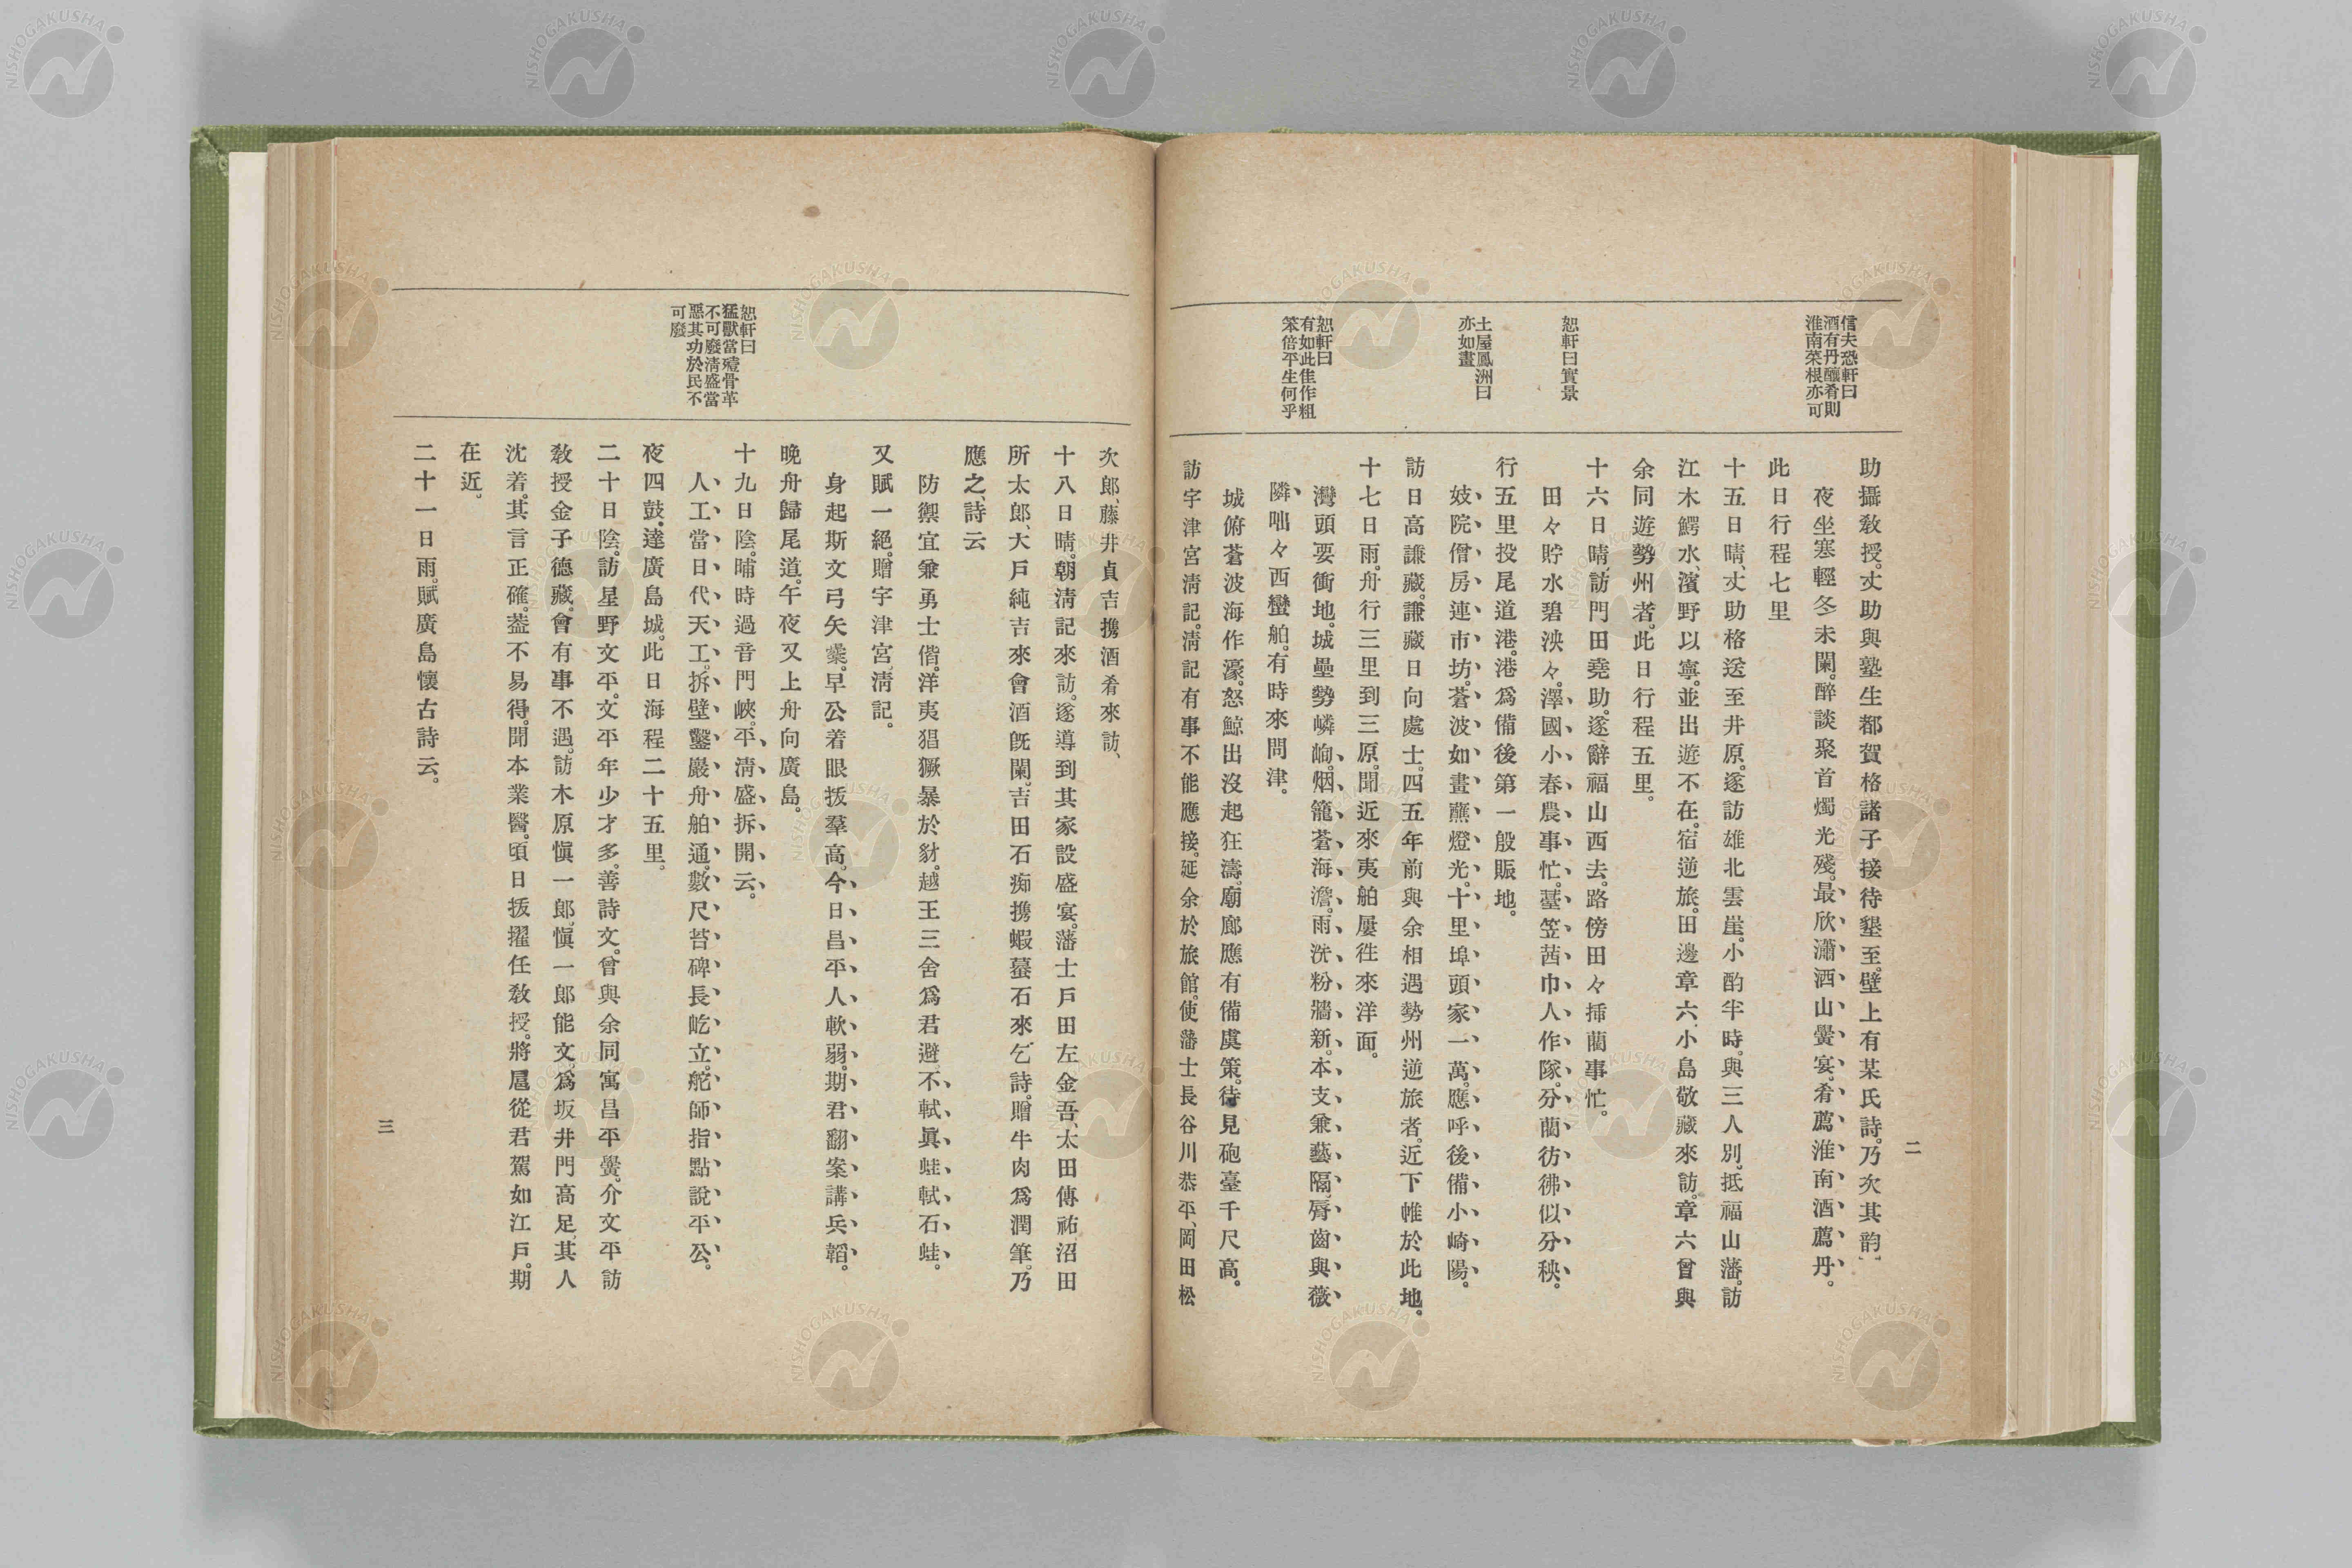 二
信夫恕軒曰
酒有丹釀肴則
淮南菜根亦可
恕軒曰實景
土屋鳳洲曰
亦如畫
恕軒曰
有如此佳作粗
笨倍平生何乎
助攝敎授。丈助與塾生都賀格諸子接待墾至。壁上有某氏詩。乃次其韵、
夜坐塞輕冬未闌。醉談聚首燭光殘。最欣瀟洒山黌宴。肴薦淮南酒薦丹。
此日行程七里
十五日晴、丈助格送至井原。遂訪雄北雲崖。小酌半時。與三人別。抵福山藩。訪
江木鰐水、濱野以寧。並出遊不在。宿逆旅。田邊章六、小島敬藏來訪。章六曾與
余同遊勢州者。此日行程五里。
十六日晴、訪門田堯助。遂辭福山西去。路傍田々揷藺事忙。
田々貯水碧泱々。澤國小春農事忙。薹笠茜巾人作隊。分藺彷彿似分秧。
行五里投尾道港。港爲備後第一殷賑地。
妓院僧房連市坊。蒼波如畫蘸燈光。十里埠頭家一萬。應呼後備小崎陽。
訪日高謙藏。謙藏日向處士。四五年前與余相遇勢州逆旅者。近下帷於此地。
十七日雨。舟行三里到三原。聞近來夷舶屢徃來洋面。
灣頭要衝地。城壘勢嶙峋。烟籠蒼海澹。雨洗粉牆新。本支兼藝隔。脣齒與薇
隣。咄々西蠻舶。有時來問津。
城俯蒼波海作濠。怒鯨出沒起狂濤。廟廊應有備虞策。待見砲臺千尺高。
訪宇津宮淸記。淸記有事不能應接。延余於旅館。使藩士長谷川恭平、岡田松
恕軒曰
猛獸當殪骨革
不可廢淸盛當
惡其功於民不
可廢
次郎、藤井貞吉携酒肴來訪、
十八日晴。朝淸記來訪。遂導到其家設盛宴。藩士戶田左金吾、太田傳祐沼田
所太郎、大戶純吉來會酒旣闌。吉田石痴携蝦蟇石來乞詩。贈牛肉爲潤筆。乃
應之、詩云
防禦宜兼勇士偕。洋夷猖獗暴於豺。越王三舍爲君避。不軾眞蛙軾石蛙。
又賦一絕。贈宇津宮淸記。
身起斯文弓矢櫜。早公着眼拔羣高。今日昌平人軟弱。期君翻案講兵韜。
晚舟歸尾道。午夜又上舟向廣島。
十九日陰。晡時過音門峽。平淸盛拆開云。
人工當日代天工。拆壁鑿巖舟舶通。數尺苔碑長屹立。舵師指點說平公。
夜四鼓。達廣島城。此日海程二十五里。
二十日陰。訪星野文平。文平年少才多。善詩文。曾與余同寓昌平黌。介文平訪
敎授金子德藏。會有事不遇。訪木原愼一郎。愼一郎能文。爲坂井門高足。其人
沈着。其言正確。葢不易得。聞本業醫。頃日拔擢任敎授。將扈從君駕如江戶。期
在近。
二十一日雨。賦廣島懷古詩云。
三